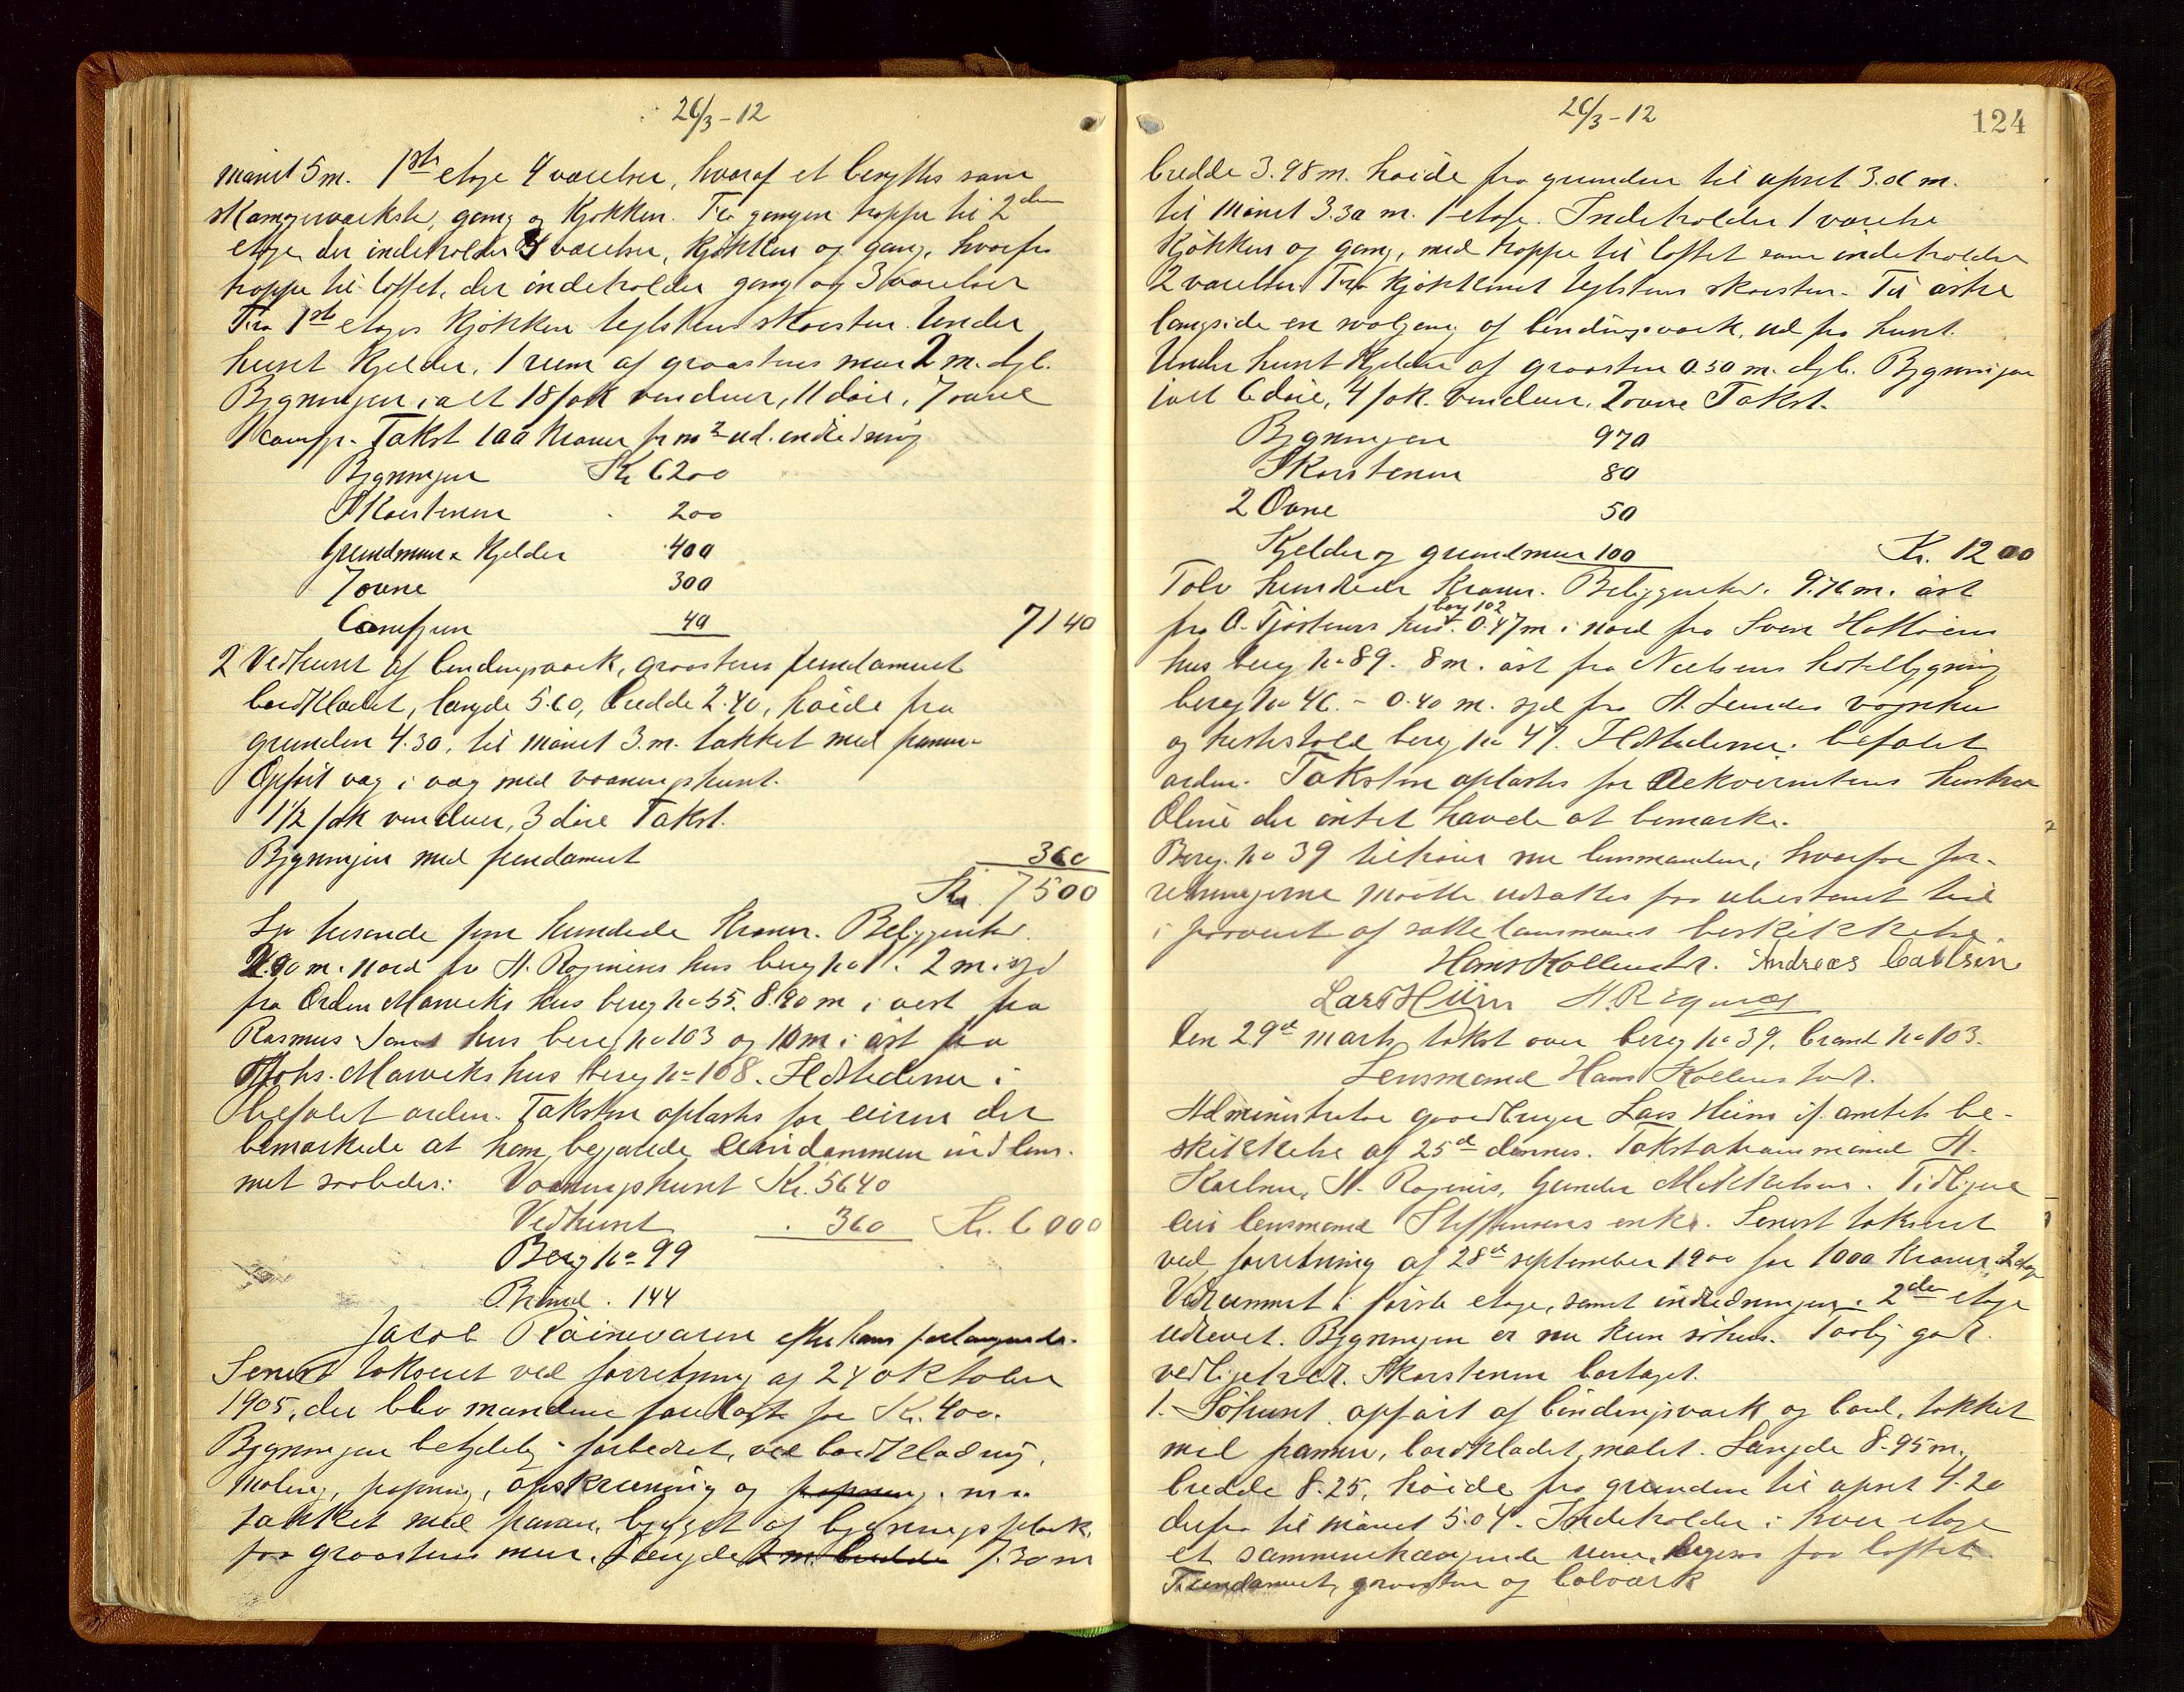 26/3-12
mönet 5 m. 1ste etage 4 værelser, hvoraf et benyttes som
skomagerværksted, gang og kjøkken. Fra gangen trappe til 2den
etage der indeholder 3 værelser, kjøkken og gang, hvorfra
trappe til loftet, der indeholder gang og 3 værelser
Fra 1ste etages kjøkken teglstens skorsten. Under
huset kjelder, 1 rum af graastens mur 2 m. dyb.
Bygningen ialt 18 fok vinduer, 11 döre, 7 ovne
1 comfyr. Takst 100 kroner pr m2 ud. indredning
Bygningen Kr 6200
Skorstenen 200
Grundmur & Kjelder 400
7 ovne 300
Comfyren 40 7140
2 Vedhuset af bindingsværk, graastens fundament
bordklædet, længde 5.60, bredde 2.40, höide fra
grunden 4.30, til mönet 3. m. tækket med panner
Opfört væg i væg med vaaningshuset.
1 1/2 fok vinduer, 3 döre Takst.
Bygningen med fundament 360
Kr. 7500
Syv tusende fem hundrede kroner. Beliggenhed.
2.90 m. nord fra H. Raginius hus bereg no 1. 2 m. syd
fra Orden Marviks hus bereg no 55. 8.90 m i vest fra
Rasmus Sands hus bereg no 103 og 10 m i öst fra
Johs. Marviks hus bereg no 108. Ildstederne i
befalet orden. Taksten oplæstes for eieren der
bemærkede at han begjærede eiendommen indlem-
met saaledes: Vaaningshuset Kr. 5640
Vedhuset 360 Kr. 6000
Bereg no 99
Brand. 144
Jacob Röinevaren efter hans forlangende.
Senest takseret ved forretning af 24 oktober
1905, der blev manden forelagt for Kr. 400.
Bygningen betydelig forbedret, ved bordklædning,
maling, papning, opskruning og papning. m.v.
tækket med panner, bygget af bygningsplank,
paa graastens mur. Længde 7 m bredde 7.30 m
26/3-12
124
bredde 3.98 m. höide fra grunden til opset 3.06 m.
til mönet 3.30 m. 1 etage. Indeholder 1 værelse
kjökken og gang, med trappe til loftet som indeholder
2 værelser. Fra kjøkkenet teglstens skorsten. Til östre
langside en svalgang af bindingsværk, ud fra huset.
Under huset kjelder af graasten 0.50 m. dyb. Bygningen
ialt 6 döre, 4 fok. vinduer. 2 ovne Takst.
Bygningen 970
Skorstenen 80
2 Ovne 50
Kjelder og grundmur 100 Kr. 1200
Tolv hundrede kroner. Beliggenhed. 9.76 m. öst
fra O. Tjöstems hus bereg 102. 0.47 m i nord fra Svend
hus bereg no 89. 8 m. öst fra Nielsens hotelbygning
bereg no 46. - 0.40 m. syd fra H. Lundes vognhus
og hestestald bereg no 47. Ildstederne i befalet
orden. Taksten oplæstes for Rekvirentens hustru
Oline der intet havde at bemærke.
Bereg. no 39 tilhörer nu lensmanden, hvorfor for-
retningerne maatte udsættes paa ubestemt tid
i paavente af sættelensmands beskikkelse.
Hans Kollenstdt. Andreas Carlsen
Lars Hiim H. Raginius
Den 29de marts takst over bereg no 39. brand no 103.
Lensmand Hans Kollenstadt.
Administrator gaardbruger Lars Hiim if. amtets be-
skikkelse af 25de dennes. Takstationsmænd A.
Karlsen, H. Raginius, Gunder Mikkelsen. Tidligere
eier lensmand Steffensens enke. Senest takseret
ved forretning af 28de september 1900 for 1000 kroner, 2 etage
Vedrummet i förste etage, samt indredningen i 2den etage
udrevet. Bygningen er nu kun söhus. Taalig godt
vedligeholdt. Skorstenen bortaget.
1. Söhuset opfört af bindingsværk og bord, tækket
med panner, bordklædet, malet. Længde 8.95 m.
bredde 8.25, höide fra grunden til opset 4.20
derfra til mönet 5.04. Indeholder i hver etage
et sammenhængende rum, ligesaa paa loftet.
Fundament, graasten og bolværk